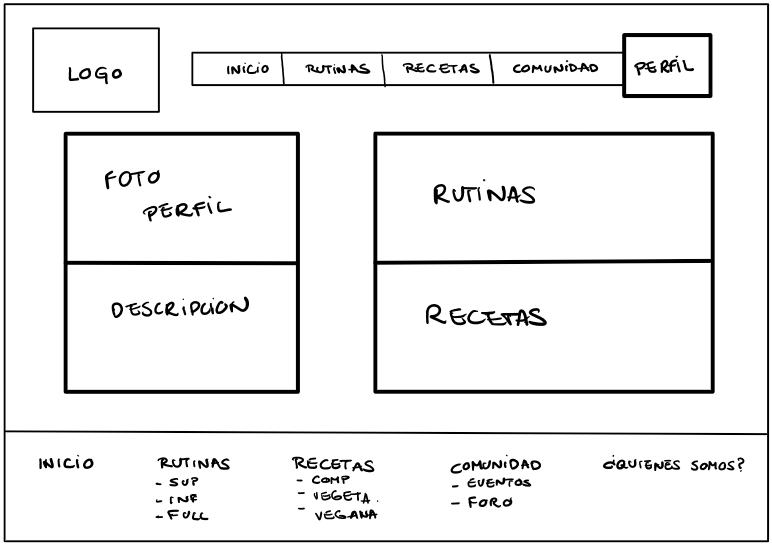 LOGO
INICIO RUTINAS RECETAS COMUNIDAD PERFIL
FOTO
PERFIL
DESCRIPCION
RUTINAS
RECETAS
INICIO
RUTINAS
- SUP
- INF
- FULL
RECETAS
- COMP
- VEGETA.
- VEGANA
COMUNIDAD
- EVENTOS
- FORO
¿QUIENES SOMOS?